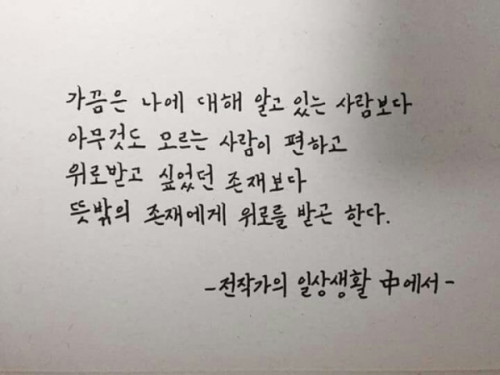 가끔은 나에 대해 알고 있는 사람보다
아무것도 모르는 사람이 편하고
위로받고 싶었던 존재보다
뜻밖의 존재에게 위로를 받곤 한다.
-전작가의 일상생활 中에서-